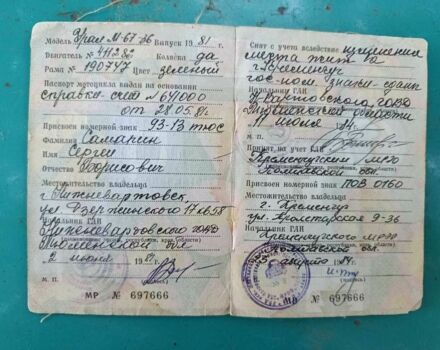 Модель Урал М-67-36 Выпуск 1981 г.
Двигатель № 411282 Коляска да
Рама № 190747 Цвет зеленый
Паспорт мотоцикла выдан на основании
справка-счет № 64000
от 28.05.81г
Присвоен номерной знак 93-13 тюс
Фамилия Самарин
Имя Сергей
Отчество Борисович
Местожительство владельца
г. Нижневартовск
ул. Дзержинского 17 кв 58
Начальник ГАИ
Нижневартовского ГОВД
Тюменской обл
2 июня 1981 г.
М. П. (подпись)
МР № 697666
Снят с учета вследствие изменения
места жит. в
г. Кременчуг
гос. ном. знаки сданы
Начальник ГАИ
Н Вартовского ГОВД
Тюменской области
11 июля
М. П.
Принят на учет ГАИ
Кременчугским МРЭО
Полтавской обл.
Присвоен номерной знак ПОВ 0160
Местожительство владельца
г. Кременчуг
9-36
Начальник ГАИ
Кременчугского МРЭО
Полтавской обл.
августа
(подпись)
МР № 697666